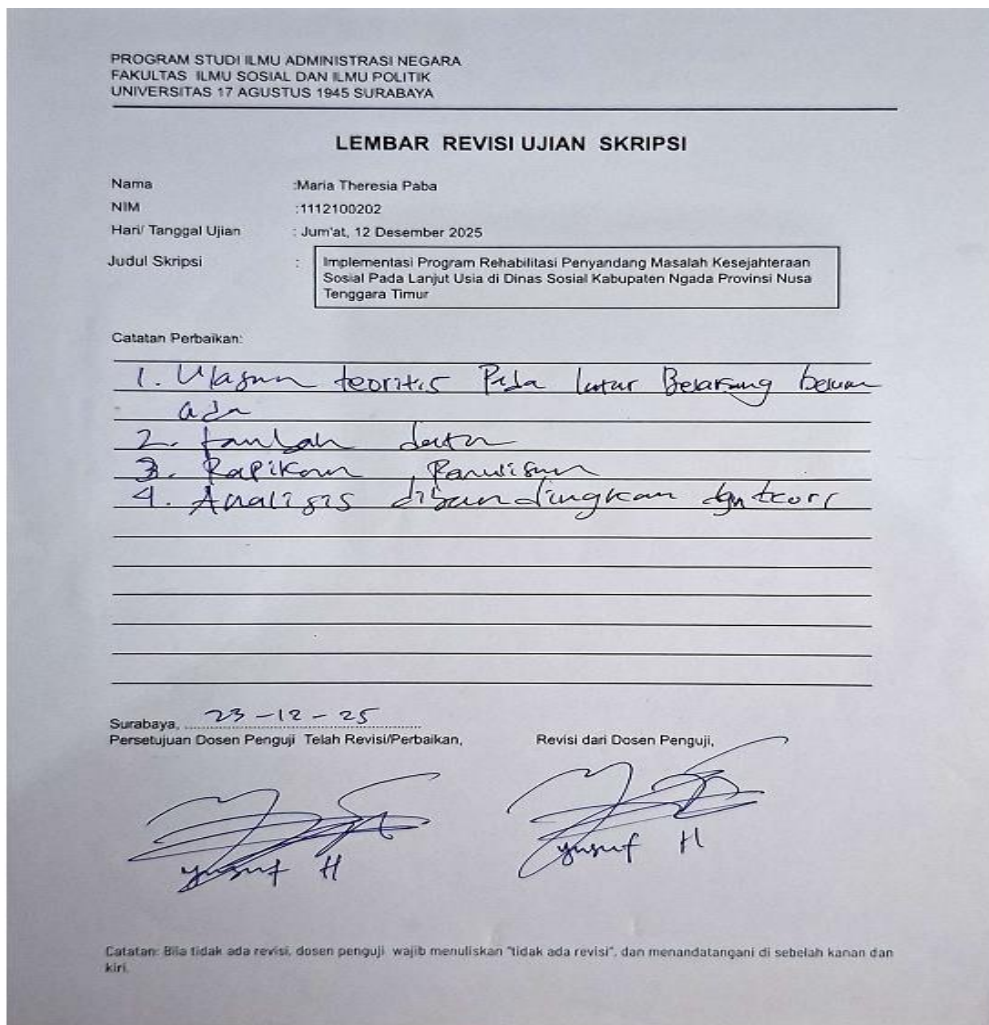 PROGRAM STUDI ILMU ADMINISTRASI NEGARA
FAKULTAS ILMU SOSIAL DAN ILMU POLITIK
UNIVERSITAS 17 AGUSTUS 1945 SURABAYA
LEMBAR REVISI UJIAN SKRIPSI
Nama :Maria Theresia Paba
NIM :1112100202
Hari/ Tanggal Ujian : Jum'at, 12 Desember 2025
Judul Skripsi : Implementasi Program Rehabilitasi Penyandang Masalah Kesejahteraan
Sosial Pada Lanjut Usia di Dinas Sosial Kabupaten Ngada Provinsi Nusa
Tenggara Timur
Catatan Perbaikan:
1. Ulasan teoritis Pada latar Belakang belum
ada
2. tambah data
3. Rapikan Panulisan
4. Analisis dibandingkan dgn teori
Surabaya, 23-12-25
Persetujuan Dosen Penguji Telah Revisi/Perbaikan, Revisi dari Dosen Penguji,
yusuf H yusuf H
Catatan: Bila tidak ada revisi, dosen penguji wajib menuliskan "tidak ada revisi", dan menandatangani di sebelah kanan dan
kiri.